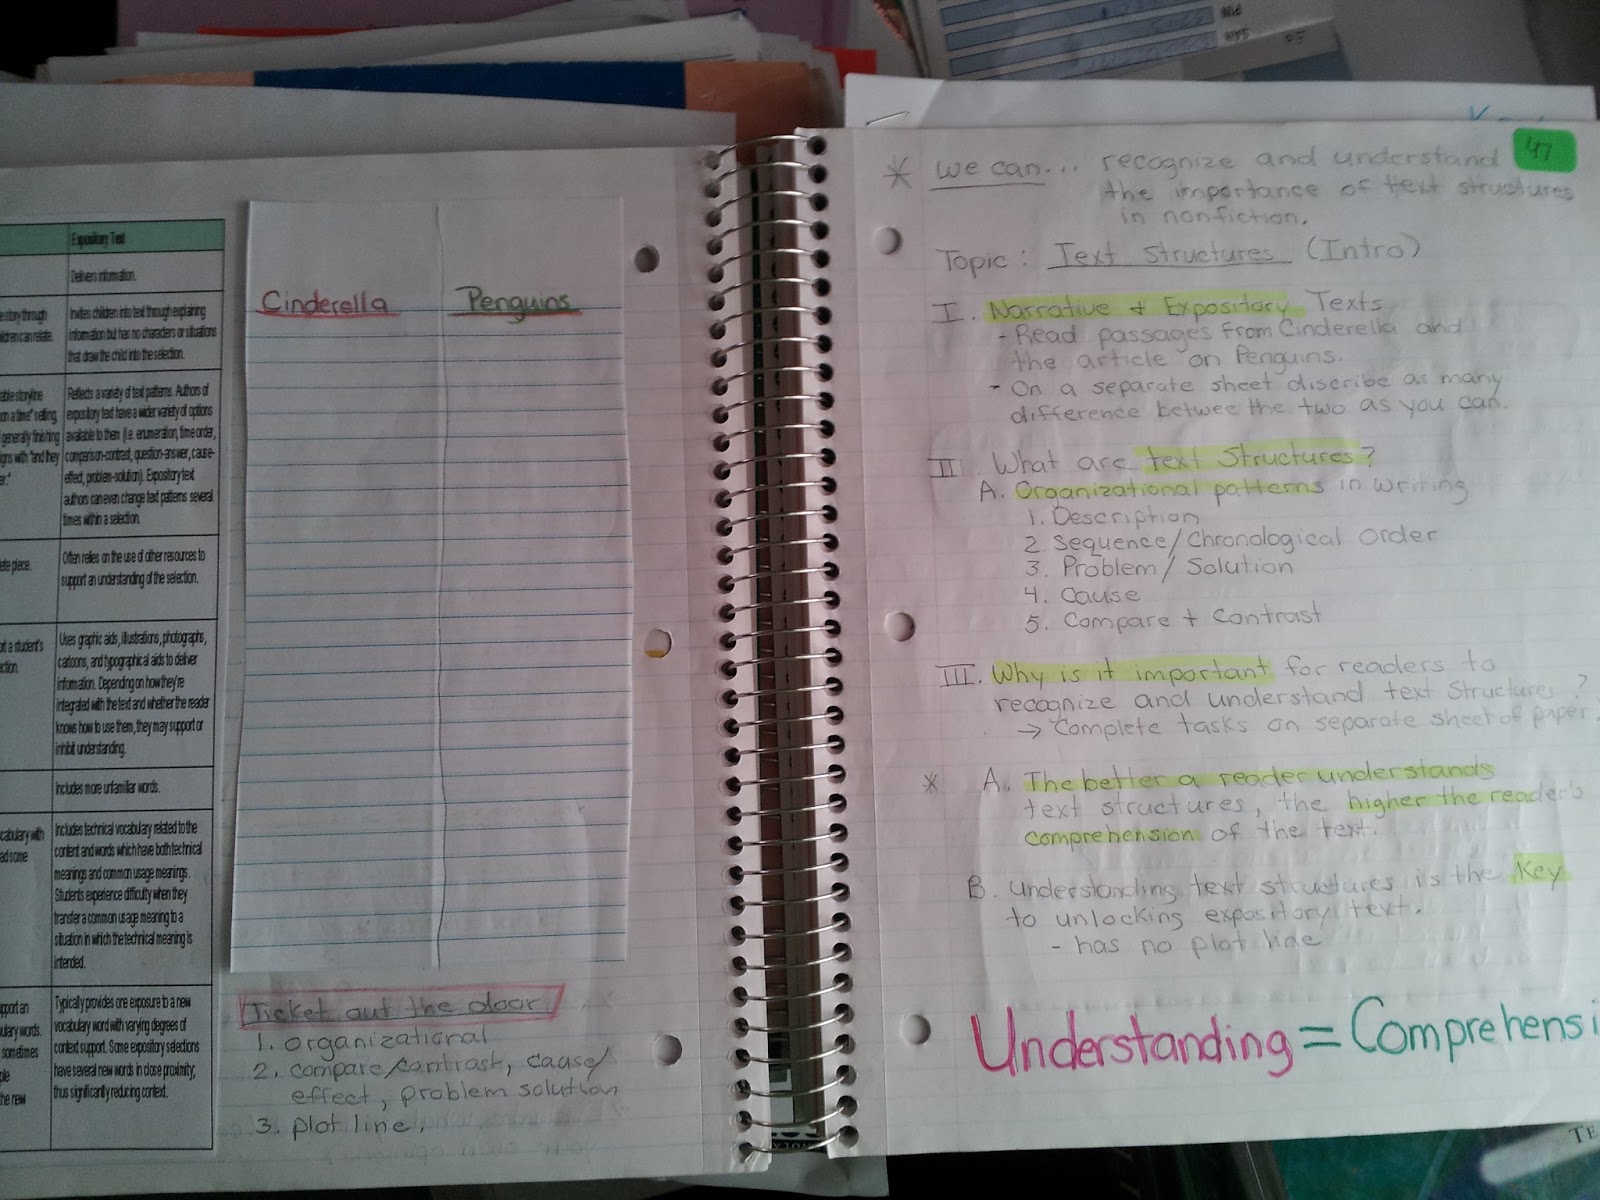 Expository Text
Delivers information.
story through
children can relate.
Invites children into text through explaining
information but has no characters or situations
that draw the child into the selection.
storyline
on a time" setting,
generally finishing
with "and they
Reflects a variety of text patterns. Authors of
expository text have a wider variety of options
available to them (i.e. enumeration, time order,
comparison-contrast, question-answer, cause-
effect, problem-solution). Expository text
authors can even change text patterns several
times within a selection.
piece.
Often relies on the use of other resources to
support an understanding of the selection.
a student's
Uses graphic aids, illustrations, photographs,
cartoons, and typographical aids to deliver
information. Depending on how they're
integrated with the text and whether the reader
knows how to use them, they may support or
inhibit understanding.
Includes more unfamiliar words.
with
some
Includes technical vocabulary related to the
content and words which have both technical
meanings and common usage meanings.
Students experience difficulty when they
transfer a common usage meaning to a
situation in which the technical meaning is
intended.
an
words.
sometimes
the new
Typically provides one exposure to a new
vocabulary word with varying degrees of
context support. Some expository selections
have several new words in close proximity;
thus significantly reducing context.
Cinderella
Penguins
Ticket out the door
1. organizational
2. compare/contrast, cause/
effect, problem solution
3. plot line.
47
* we can... recognize and understand
the importance of text structures
in nonfiction.
Topic: Text Structures (Intro)
I. Narrative & Expository Texts
- Read passages from Cinderella and
the article on Penguins.
- On a separate sheet discribe as many
difference betwee the two as you can.
II What are text Structures?
A. Organizational patterns in writing
1. Description
2. Sequence/Chronological Order
3. Problem/Solution
4. Cause
5. Compare + Contrast
III. Why is it important for readers to
recognize and understand text Structures?
→ Complete tasks on separate sheet of paper.
* A. The better a reader understands
text structures, the higher the reader's
comprehension of the text.
B. Understanding text structures is the Key
to unlocking expository text.
- has no plot line
Understanding = Comprehensi
PIN
SAN
TE